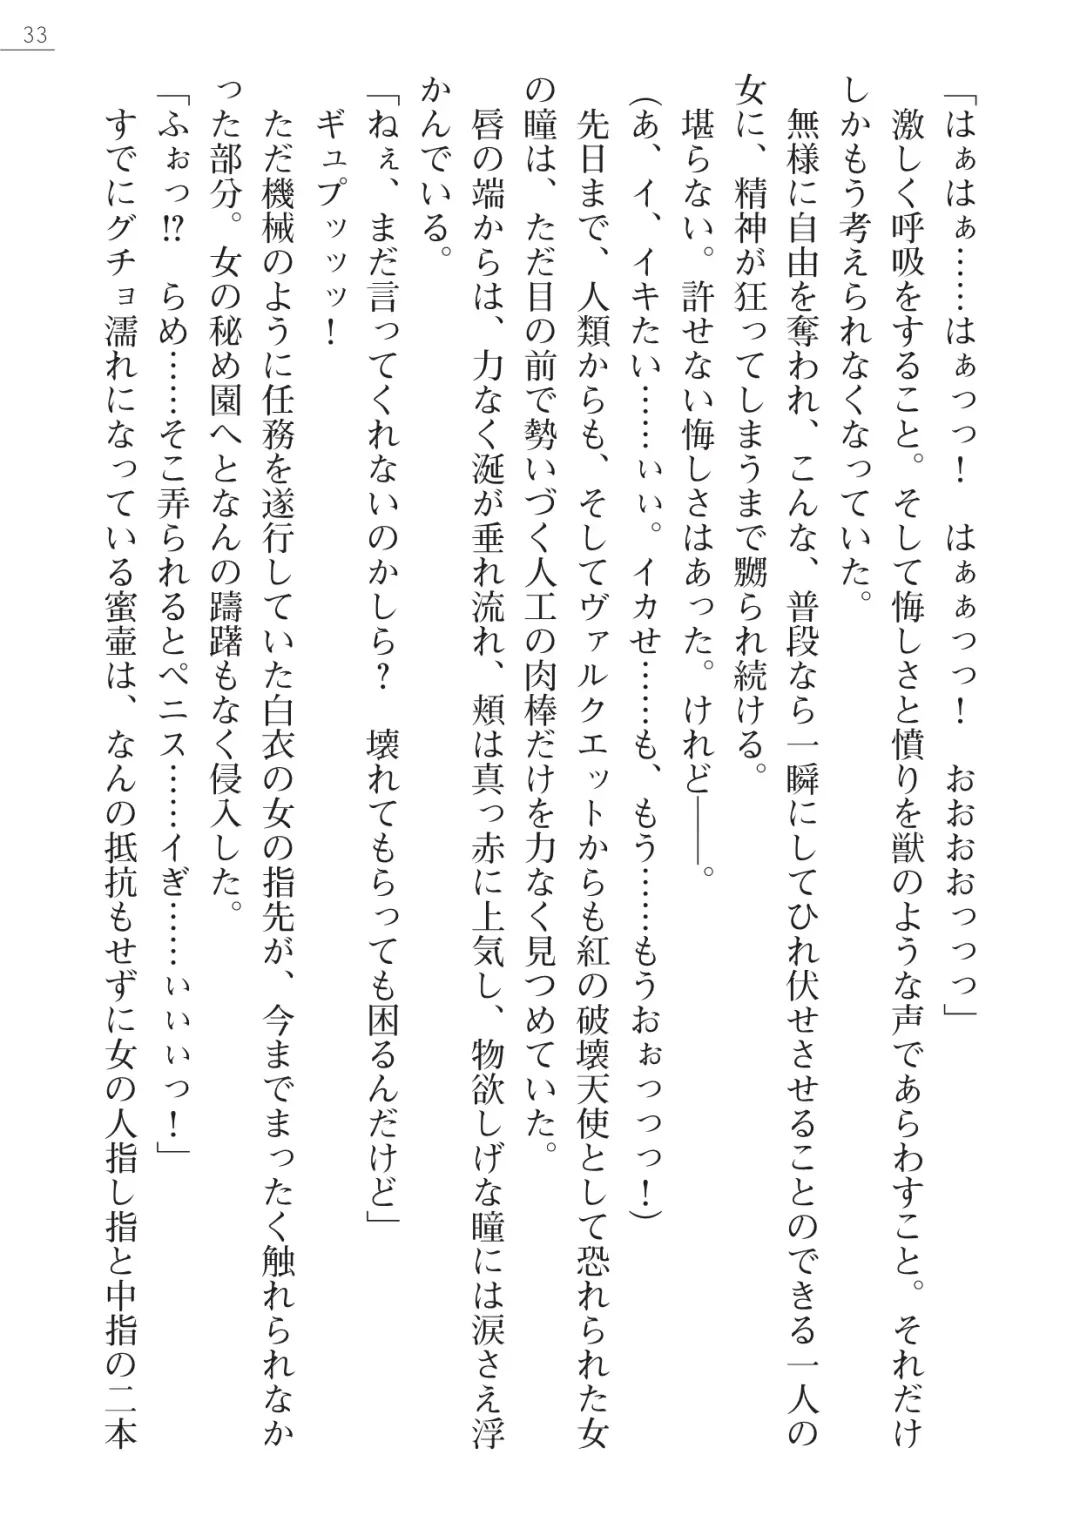 33
「はぁはぁ……はぁっっ！　はぁぁっっ！　おおおおっっっ」
　激しく呼吸をすること。そして悔しさと憤りを獣のような声であらわすこと。それだけ
しかもう考えられなくなっていた。
　無様に自由を奪われ、こんな、普段なら一瞬にしてひれ伏せさせることのできる一人の
女に、精神が狂ってしまうまで嬲られ続ける。
　堪らない。許せない悔しさはあった。けれど――。
（あ、イ、イキたい……ぃぃ。イカせ……も、もう……もうおぉっっっ！）
　先日まで、人類からも、そしてヴァルクエットからも紅の破壊天使として恐れられた女
の瞳は、ただ目の前で勢いづく人工の肉棒だけを力なく見つめていた。
　唇の端からは、力なく涎が垂れ流れ、頬は真っ赤に上気し、物欲しげな瞳には涙さえ浮
かんでいる。
「ねぇ、まだ言ってくれないのかしら？　壊れてもらっても困るんだけど」
　ギュプッッッ！
　ただ機械のように任務を遂行していた白衣の女の指先が、今までまったく触れられなか
った部分。女の秘め園へとなんの躊躇もなく侵入した。
「ふぉっ!?　らめ……そこ弄られるとペニス……イぎ……ぃぃぃっ！」
　すでにグチョ濡れになっている蜜壷は、なんの抵抗もせずに女の人指し指と中指の二本